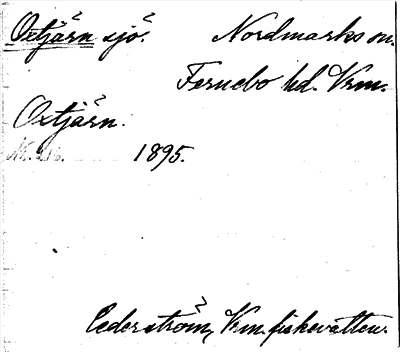 Oxtjärn sjö. Nordmarks sn.
Fernebo hd. Vrm.
Oxtjärn.
1895.
Cederström, Vrm. fiskevatten.